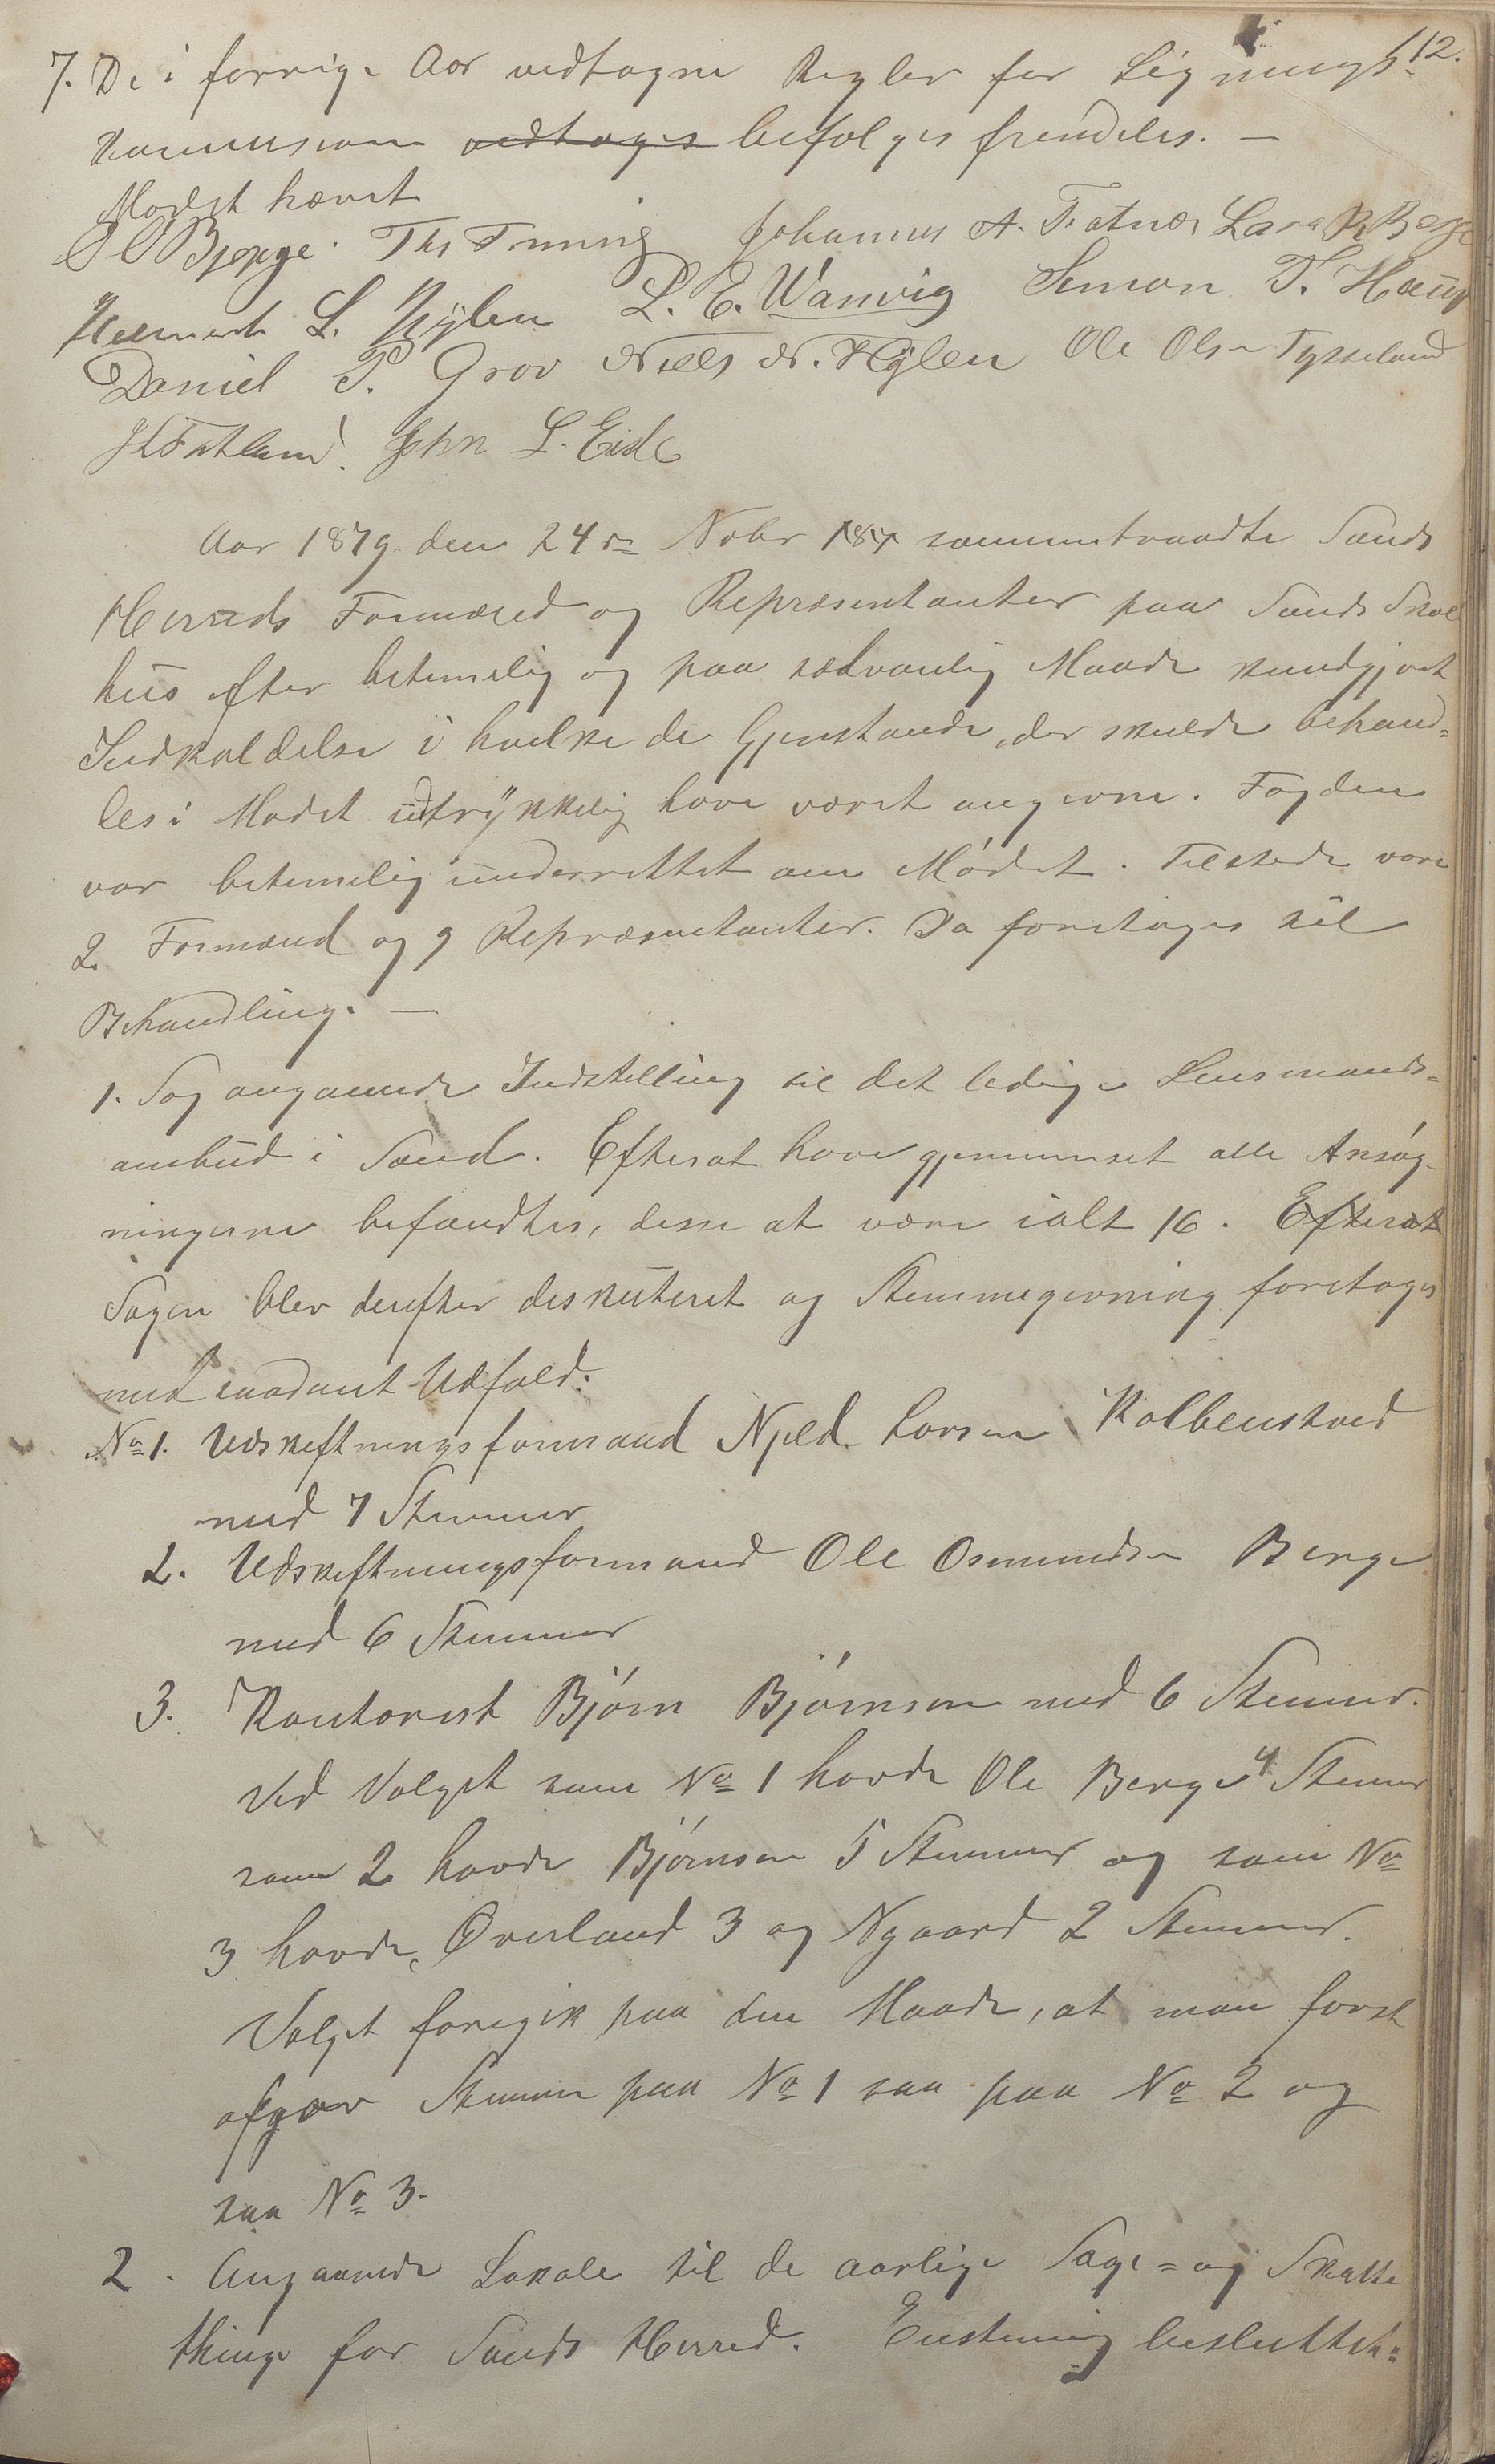 112.
7. De i forrige Aar vedtagne Regler for Lignings-
kommissionen vedtages befølges fremdeles. —
Mødet hævet
O O Bjerge. Ths Fruing Johannes A. Fatnes Lars R Berge
L. Hylen L. E. Wanvig Simon T. Haug
Daniel P. Grov Niels N. Hylen Ole Olsen Tysseland
Fatland. John L. Eide
Aar 1879 den 24de Nobr 187 sammentraadte Sands
Herreds Formænd og Repræsentanter paa Sands Skole
hus efter betimelig og paa sædvanlig Maade kundgjort
Indkaldelse i hvilke de Gjenstande, der skulde behand=
les i Mødet udtrykkelig have været angivne. Fogden
var betimelig underrettet om Mødet. Tilstede vare
2 Formænd og 9 Repræsentanter. Da foretages til
Behandling. —
1. Sag angaaende Indstilling til det ledige Lensmands=
ombud i Sand. Efterat have gjennemset alle Ansøg-
ningerne befandtes, disse at være ialt 16. Efterat
Sagen blev derefter diskuteret og Stemmegivning foretages
med saadant Udfald:
No 1. Udskiftningsformand Njeld Larsen Kolbenstved
med 7 Stemmer
2. Udskiftningsformand Ole Osmundsen Berge
med 6 Stemmer
3. Kontorist Bjørn Bjørnsen med 6 Stemmer.
Ved Valget som No 1 havde Ole Berge 4 Stemmer
som 2 havde Bjørnsen 5 Stemmer og som No
3 havde Overland 3 og Nygaard 2 Stemmer.
Valget foregik paa den Maade, at man først
afgav Stemmer paa No 1 saa paa No 2 og
saa No 3.
2. Angaaende Lokale til de aarlige Sage= og Skatte
thinge for Sands Herred. Enstemmig besluttet: